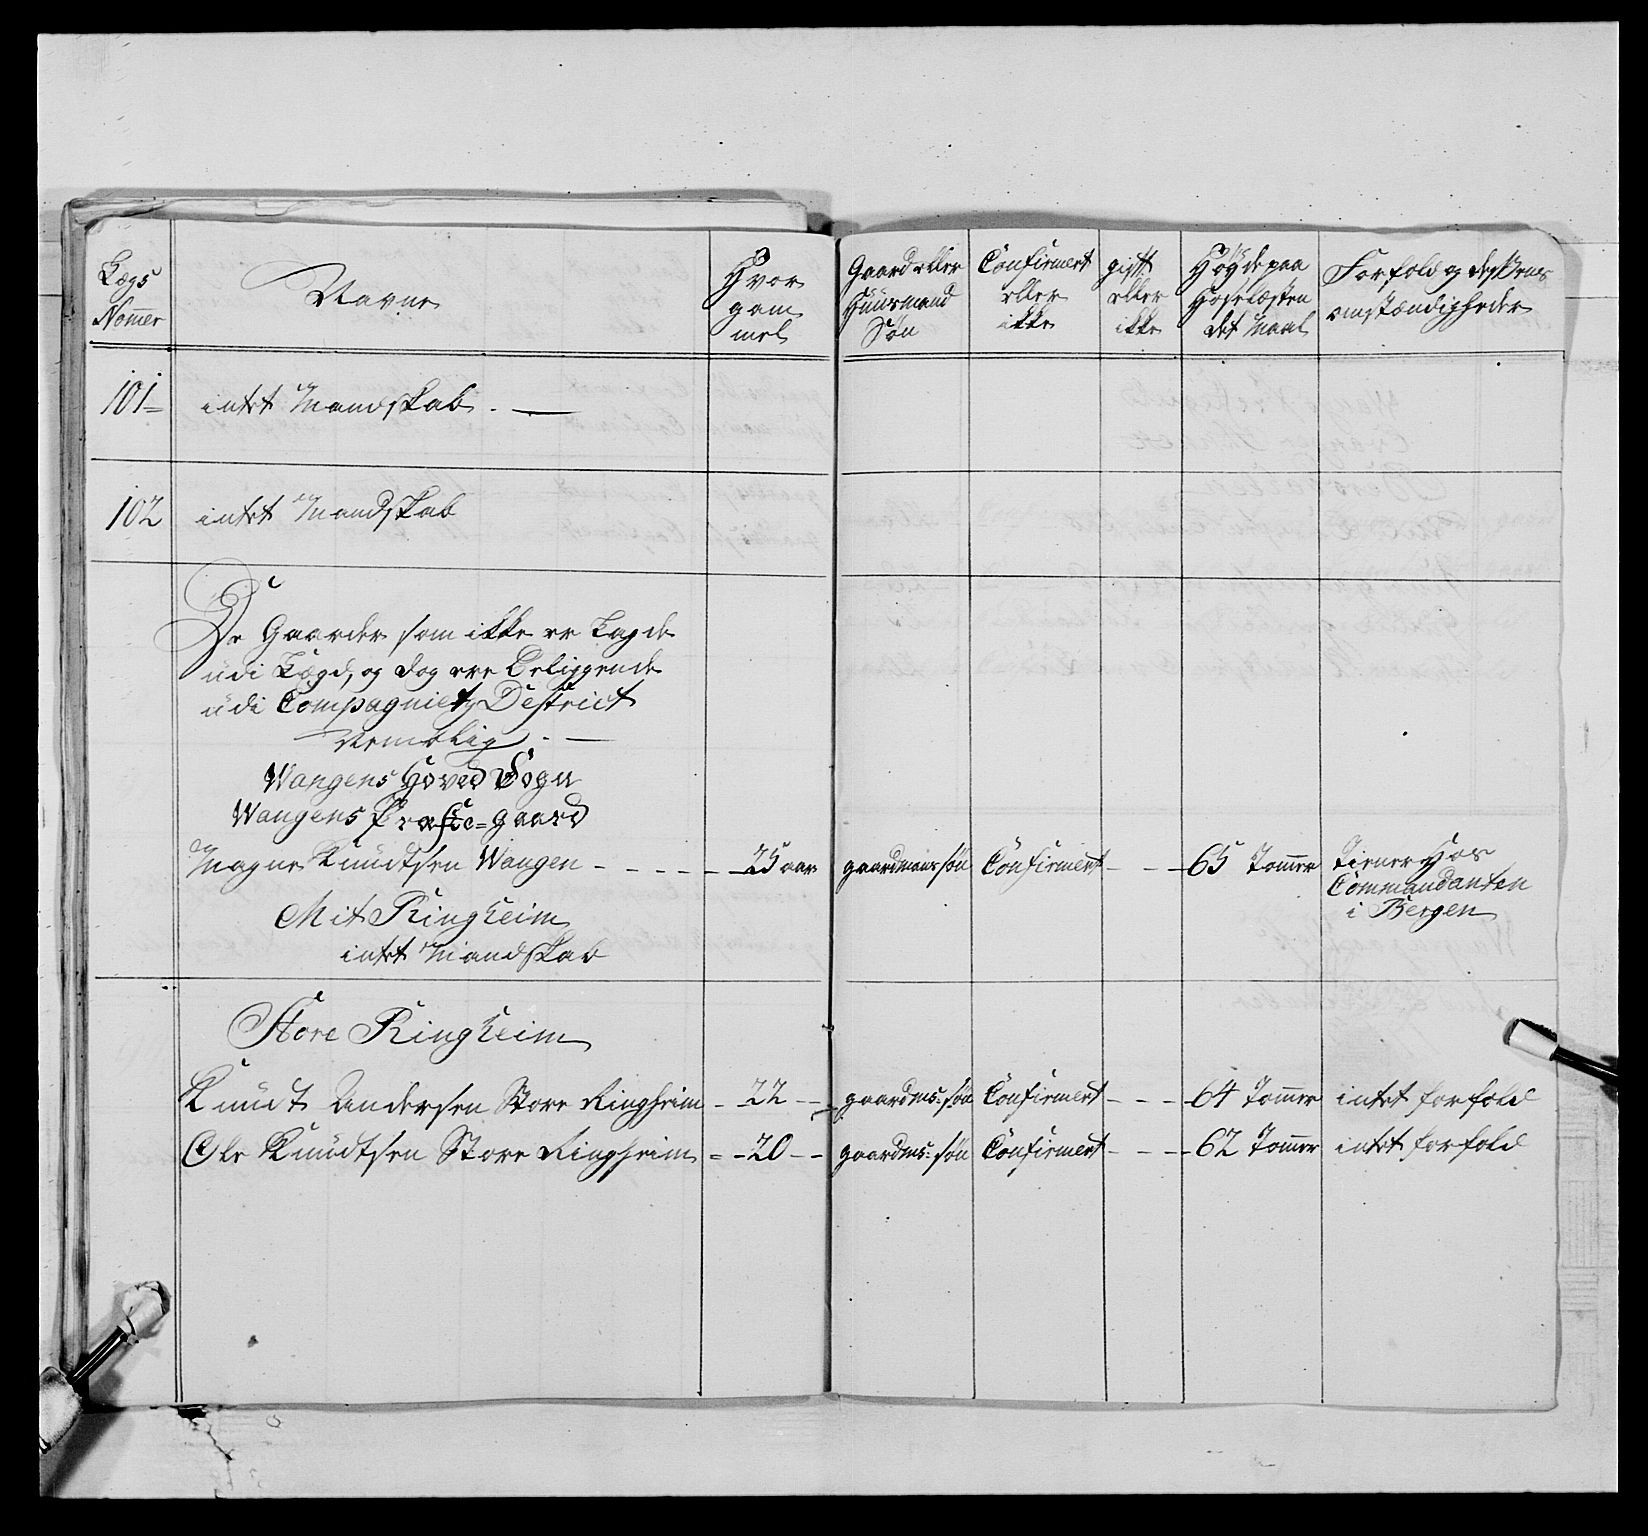 Lægs Nom̄er
Navne
Hvor gam mel
Gaard eller Huusmand Søn
Confirmert eller ikke
gift eller ikke
Høyde paa Hoselæsten det Maal
Forfold og dessens omstændigheder
101= intet Mandskab. —
102 intet Mandskab
De Gaarder som ikke er Lagde
udi Lægd, og dog ere beliggende
udi Compagniets District
Nemblig. —
Wangens Hoved Sogn
Wangens Præste=gaard
Magne Knudtsen Wangen - - - - - 25 aar gaardmans søn Confirmert - - - 65 Tom̄er Tiener Hos
Commandanten
i Bergen
Mit Ringheim
intet Mandskab
Store Ringheim
Knudt Andersen Store Ringheim - 22 - - gaardms: søn Confirmert - - - 64 Tom̄er intet forfold
Ole Knudtsen Store Ringheim = - 20 - - gaardms: søn Confirmert - - - 62 Tom̄er intet forfold